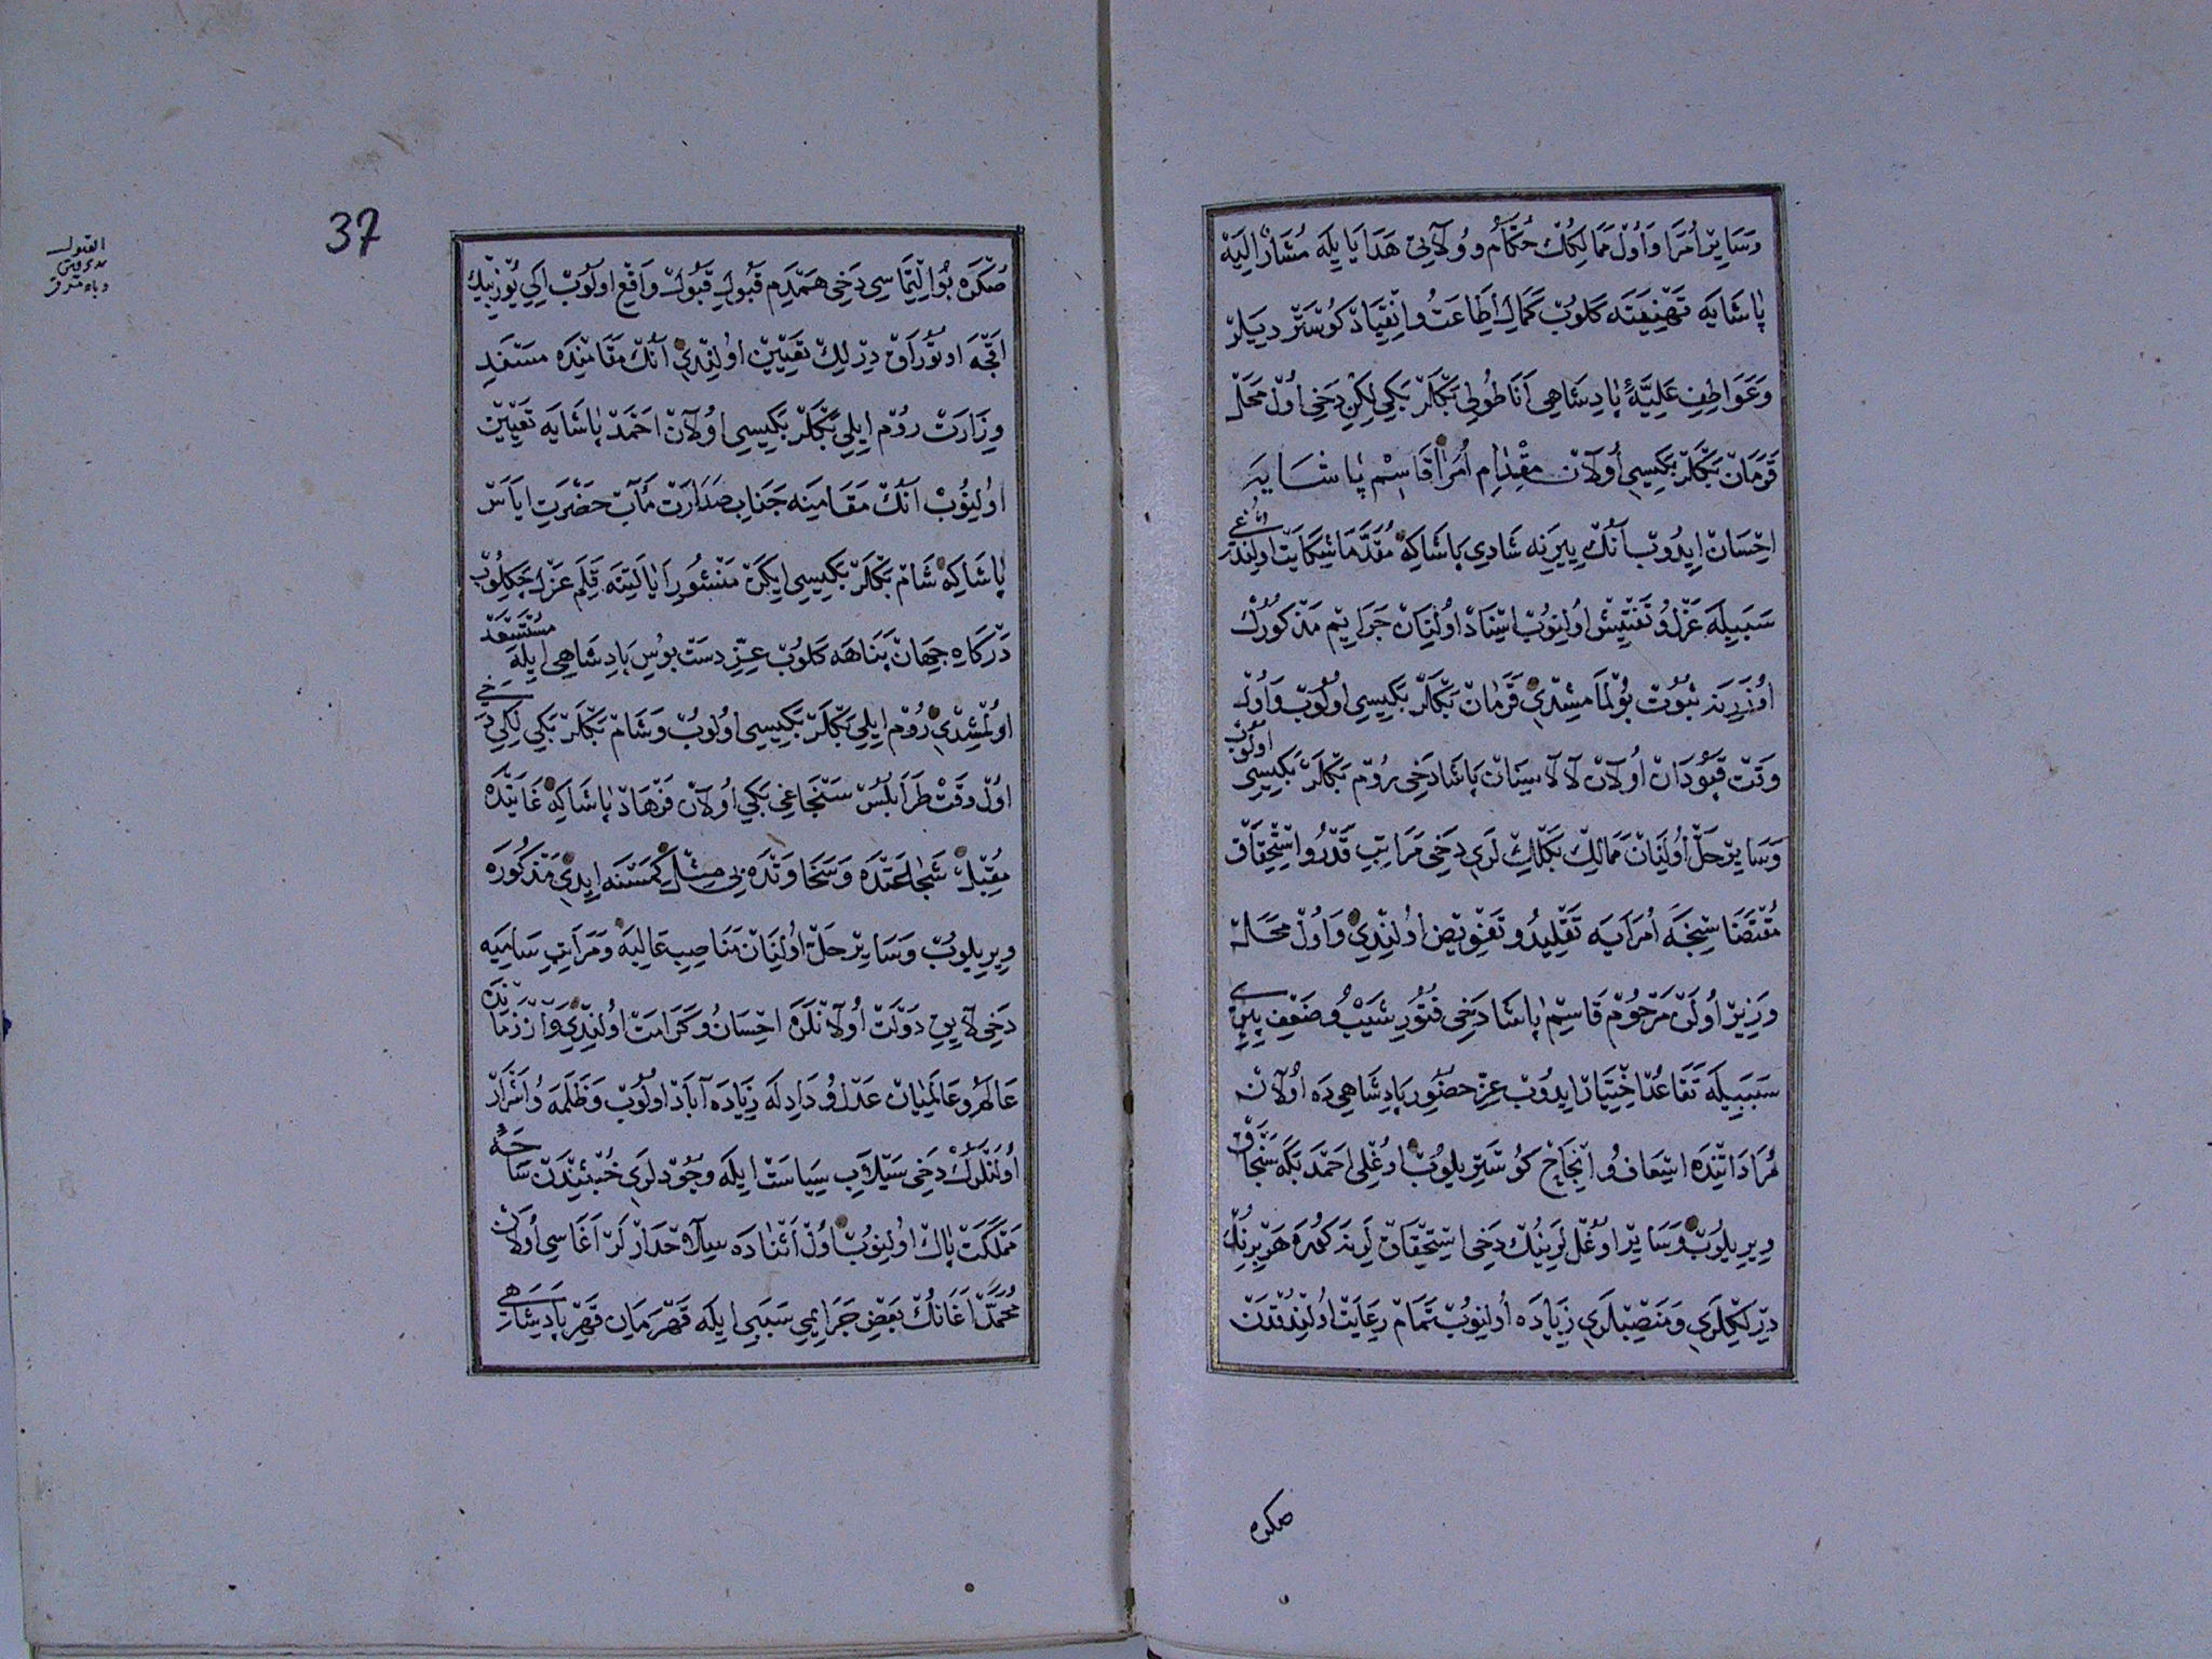 وَسَايِرْ اُمَرَا وَاُولْ مَمَالِكُكْ حُكَّامْ وَ وُلَاتِى هَدَايَا يِلَه مُشَارٌ اِلَيْهْ
پَاشَايَه تَهْنِيَتَه كَلُوبْ كَمَالِ اِطَاعَتْ وَانِْقيَادْ كُوسْتَرْدِيلَرْ
وَعَوَاطِفِ عَلِيَّۀِ پَادِشَاهِى اَنَاطُولِى بَكْلَرْبَكِى لِكِنْ دَخِى اُولْ مَحَلْدَه
قَرَمَانْ بَكْلَرْبَكِيسِى اُولَانْ مِقْدَامِ اُمَرَا قَاسِمْ پَاشَايَه
اِحْسَانْ اِيدُوبْ اَنُكْ يِيرِينَه شَادِى پَاشَاكِه مُقَدَّمَا شِكَايَتْ اُولِنْدُوغِى
سَبَبِيلَه عَزْلُ وُ تَفْتِيشْ اُولِنُوبْ اِسْنَادْ اُولِنَانْ جَرَايِمِ مَذْكُورُكْ
اُوزَرِينَه ثُبُوتْ بُولْمَامِشْدِى قَرَمَانْ بَكْلَرْبَكِيسِى اُولُوبْ وَاُولْ
وَقْتْ قَپُودَانْ اُولَانْ لَالَا سِنَانْ پَاشَا دَخِى رُومْ بَكْلَرْبَكِيسِى اُولُوبْ
وَسَايِرْ حَلّ اُولِنَانْ مَمَالِكْ بَكْلِكْ لَرِى دَخِى مَرَاتِبِ قَدْرُ وُ اِسْتِحْقَاقْ
مُقْتَضَاسِنْجَه اُمَرَايَه تَقْلِيدُ وُ تَفْوِيضْ اُولِنْدِى وَاُولْ مَحَلْدَه
وَزِيرْ اُولَنْ مَرْحُومْ قَاسِمْ پَاشَا دَخِى فُتُورِ شَيْبُ وُ ضَعْفِ پِيرِى
سَبَبِيلَه تَقَاعُدْ اِخْتِيَارْ اِيدُوبْ عِزِّ حُضُورِ پَادِشَاهِى دَه اُولَانْ
مُرَادَاتِنْدَه اِسْعَافُ وُ اِنْجَاحْ كُوسْتَرِيلُوبْ اُوغْلِى اَحْمَدْ بَكَه سَنْجَاقْ
وِيرِيلُوبْ وَسَايِرْ اُوغُلْ لَرِينُكْ دَخِى اِسْتِحْقَاقْ لَرِينَه كُورَه هَرْ بِرِنُكْ
دِيرْلِكْلَرِى وَمَنْصِبْلَرِى زِيَادَه اُولِنُوبْ تَمَامْ رِعَايَتْ اُولِنْدُقْدَنْ
صكره
37
صُكْرَه بُو اِلْتِمَاسِى دَخِى هَمْدَمِ قَبُولِ قَبُولْ وَاقِعْ اُولُوبْ اِكِى يُوزْ بِيكْ
اَقْچَه اُوتُورَاقْ دِيرْلِكْ تَعْيِينْ اُولِنْدِى اَنُكْ مَقَامِنْدَه مَسْنَدِ
وِزَارَتْ رُومْ اِيلِى بَكْلَرْبَكِيسِى اُولَانْ اَحْمَدْ پَاشَايَه تَعْيِينْ
اُولِنُوبْ اَنُكْ مَقَامِينَه جَنَابِ صَدَارَتْ مَآبْ حَضْرَتِ اِيَاسْ
پَاشَاكِه شَامْ بَكْلَرْبَكِيسِى اِيكَنْ مَنْشُورِ اَيَالَتِنَه قَلَمِ عَزْلْ چَكِلُوبْ
دَرْكَاهِ جِهَانْ پَنَاهَه كَلُوبْ عِزِّ دَسْتْ بُوسِ پَادِشَاهِى اِيلَه مُسْتَسْعَدْ
اُولْمِشْدِى رُومْ اِيلِى بَكْلَرْبَكِيسِى اُولُوبْ وَشَامْ بَكْلَرْبَكِى لِكِى دَخِى
اُولْ وَقْتْ طَرَابُلُسْ سَنْجَاغِى بَكِى اُولَانْ فَرْهَادْ پَاشَاكِه غَايَتْدَه
مُقْبِلْ شَجَاعَتْدَه وَسَخَاوَتْدَه بِى مِثِلْ كِمْسَنَه اِيدِى مَذْكُورَه
وِيرِيلُوبْ وَسَايِرْ حَلّ اُولِنَانْ مَنَاصِبِ عَالِيَه وَمَرَاتِبِ سَامِيَه
دَخِى لَايِقِ دَوْلَتْ اُولَانْلَرَه اِحْسَانُ وُ كَرَامَتْ اُولِنْدِى وَاَزْ زَمَانْدَه
عَالَمُ وُ عَالَمِيَانْ عَدْلُ وُ دَادِلَه زِيَادَه آبَادْ اُولُوبْ وَظَلَمَه وُ اَشْرَارْ
اُولَنْلَرُكْ دَخِى سَيْلَابِ سِيَاسَتْ اِيلَه وُجُودْلَرِى خُبْثِنْدَنْ سَاحَۀِ
مَمْلَكَتْ پَاكْ اُولِنُوبْ اُولْ اَثْنَادَه سِلَاحْدَارْلَرْ اَغَاسِى اُولَانْ
مُحَمَّدْ اَغَانُكْ بَعْضِ جَرَايِمِى سَبَبِى اِيلَه قَهْرَمَانِ قَهْرِ پَادِشَاهِى